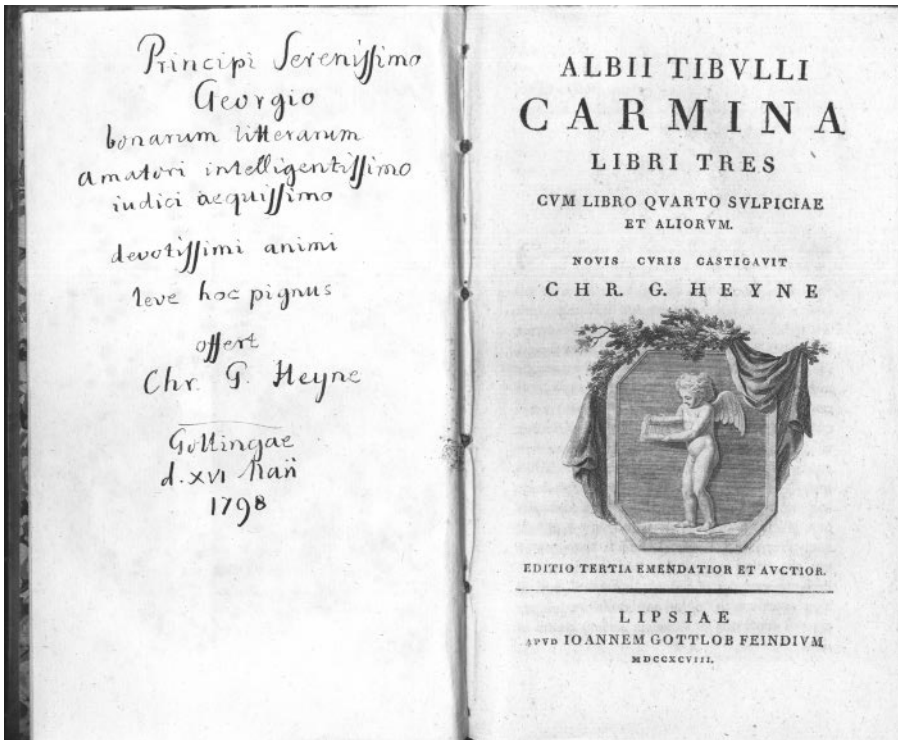 Principi Serenissimo
Georgio
bonarum litterarum
amatori intelligentissimo
iudici aequissimo
devotissimi animi
leve hoc pignus
offert
Chr. G. Heyne
Gottingae
d. XVI Maii
1798
ALBII TIBVLLI
CARMINA
LIBRI TRES
CVM LIBRO QVARTO SVLPICIAE
ET ALIORVM.
NOVIS CVRIS CASTIGAVIT
CHR. G. HEYNE
EDITIO TERTIA EMENDATIOR ET AVCTIOR.
LIPSIAE
APVD IOANNEM GOTTLOB FEINDIVM
MDCCXCVIII.